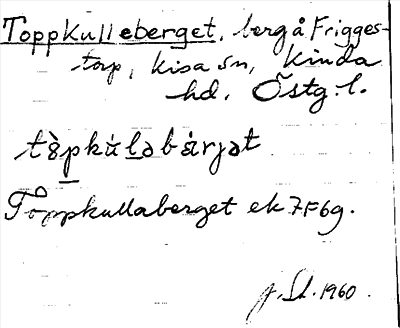 Toppkulleberget, berg å Frigges-
torp, Kisa sn, Kinda
hd, Östg. l.
Toppkullaberget ek 7F6g.
1960.